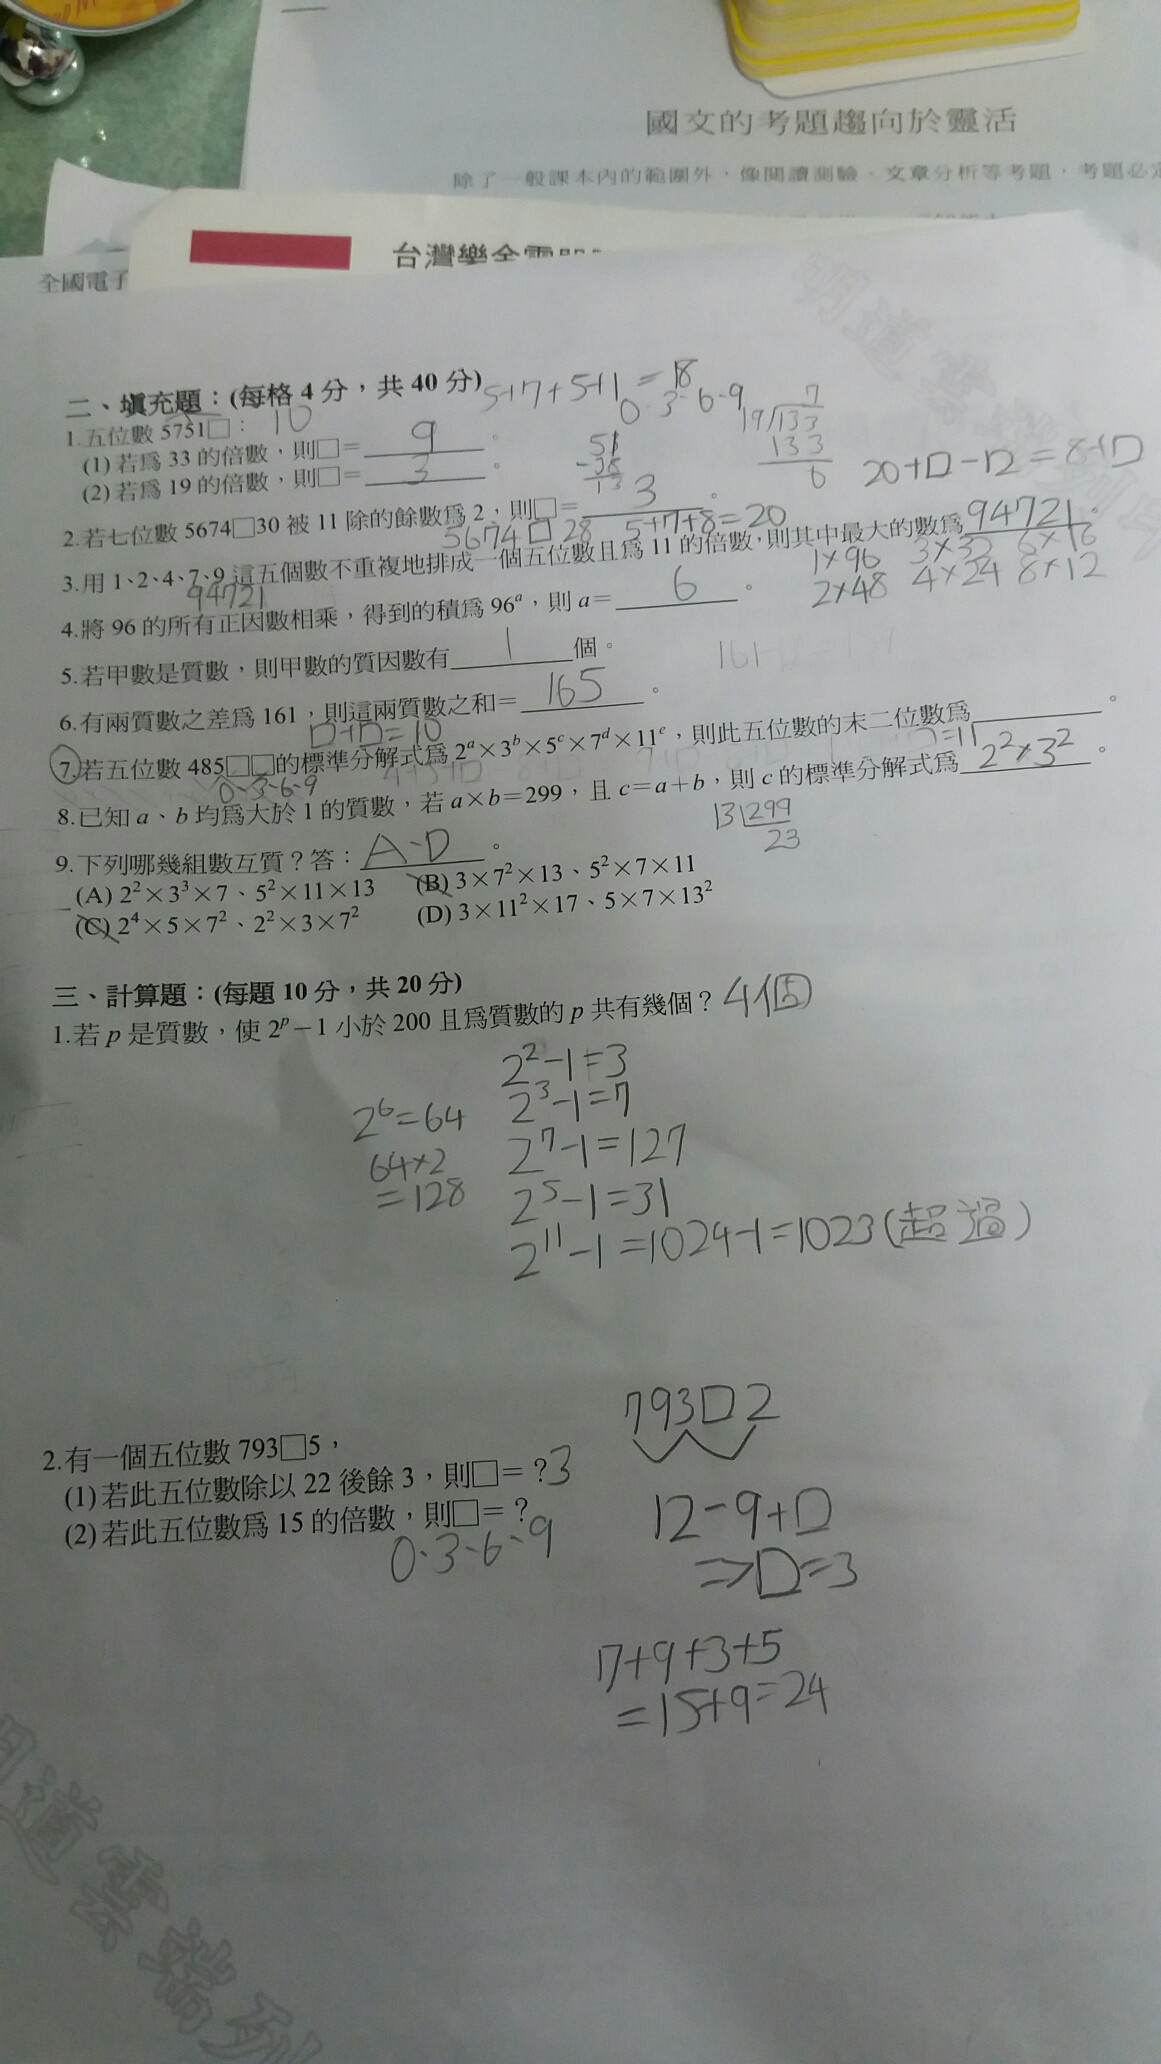 國文的考題趨向於靈活
除了一般課本內的範圍外，像閱讀測驗、文章分析等考題，考題必定
台灣樂全
全國電子
二、填充題：(每格 4 分，共 40 分)
5+7+5+1=18
0.3-6-9
1.五位數 5751□：
10
(1) 若為 33 的倍數，則□=9。
(2) 若為 19 的倍數，則□=3。
51
-38
13
7
19/133
133
6
20+□-12=8+□
2.若七位數 5674□30 被 11 除的餘數為 2，則□=3。
5674□28
5+7+8=20
3.用 1、2、4、7、9 這五個數不重複地排成一個五位數且為 11 的倍數，則其中最大的數為94721。
94721
1×96 3×32 6×16
2×48 4×24 8×12
4.將 96 的所有正因數相乘，得到的積為 96ᵃ，則 a=6。
5.若甲數是質數，則甲數的質因數有1個。
6.有兩質數之差為 161，則這兩質數之和=165。
□+□=10
7.若五位數 485□□的標準分解式為 2ᵃ×3ᵇ×5ᶜ×7ᵈ×11ᵉ，則此五位數的末二位數為。
0.3.6.9
□=11
8.已知 a、b 均為大於 1 的質數，若 a×b=299，且 c=a+b，則 c 的標準分解式為2²×3²。
13 299
23
9.下列哪幾組數互質？答：A、D。
(A) 2²×3³×7、5²×11×13 (B) 3×7²×13、5²×7×11
(C) 2⁴×5×7²、2²×3×7² (D) 3×11²×17、5×7×13²
三、計算題：(每題 10 分，共 20 分)
1.若 p 是質數，使 2ᵖ−1 小於 200 且為質數的 p 共有幾個？4個
2²-1=3
2³-1=7
2⁶=64
2⁷-1=127
64×2
=128
2⁵-1=31
2¹¹-1=1024-1=1023(超過)
793□2
2.有一個五位數 793□5，
(1) 若此五位數除以 22 後餘 3，則□=？3
(2) 若此五位數為 15 的倍數，則□=？
0、3、6、9
12-9+□
⇒□=3
7+9+3+5
=15+9=24
明道雲端列
明道雲端列